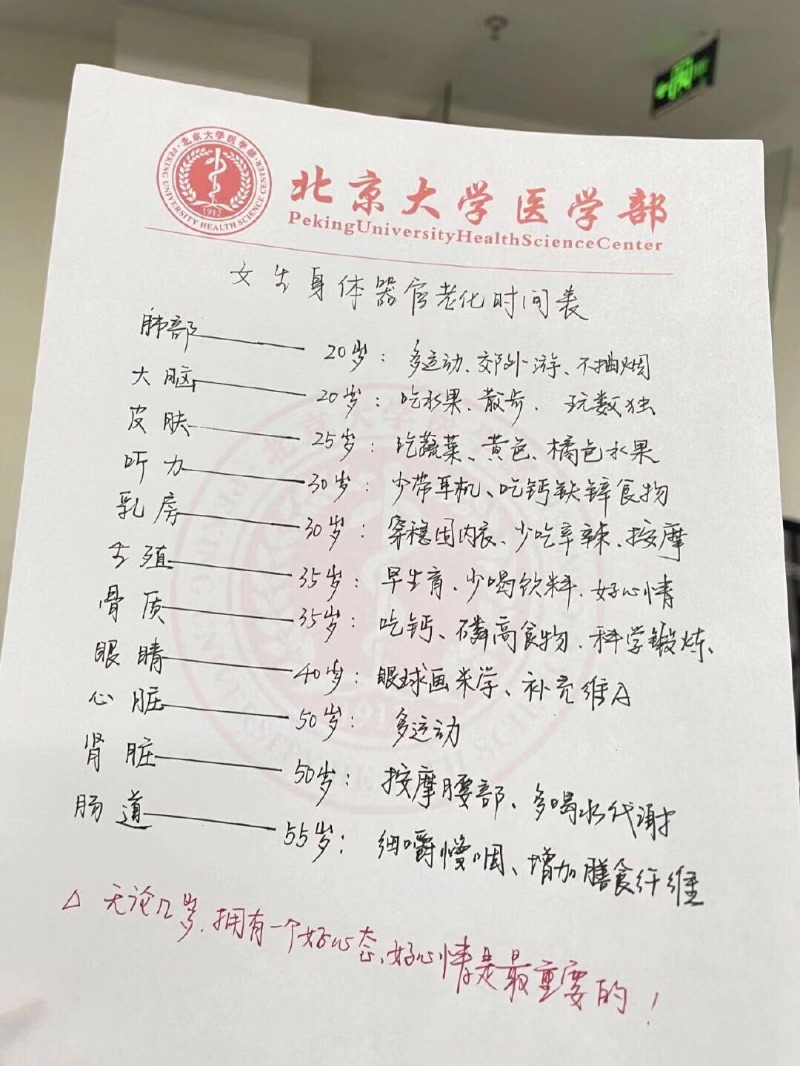 北京大学医学部
PEKING UNIVERSITY HEALTH SCIENCE CENTER
1912
北京大学医学部
Peking University Health Science Center
女生身体器官老化时间表
肺部 20岁：多运动、郊外游、不抽烟
大脑 20岁：吃水果、散步、玩数独
皮肤 25岁：吃蔬菜、黄色、橘色水果
听力 30岁：少带耳机、吃钙铁锌食物
乳房 30岁：穿稳固内衣、少吃辛辣、按摩
生殖 35岁：早生育、少喝饮料、好心情
骨质 35岁：吃钙、磷高食物、科学锻炼、
眼睛 40岁：眼球画米字、补充维A
心脏 50岁：多运动
肾脏 50岁：按摩腰部、多喝水代谢
肠道 55岁：细嚼慢咽、增加膳食纤维
△ 无论几岁，拥有一个好心态、好心情是最重要的！